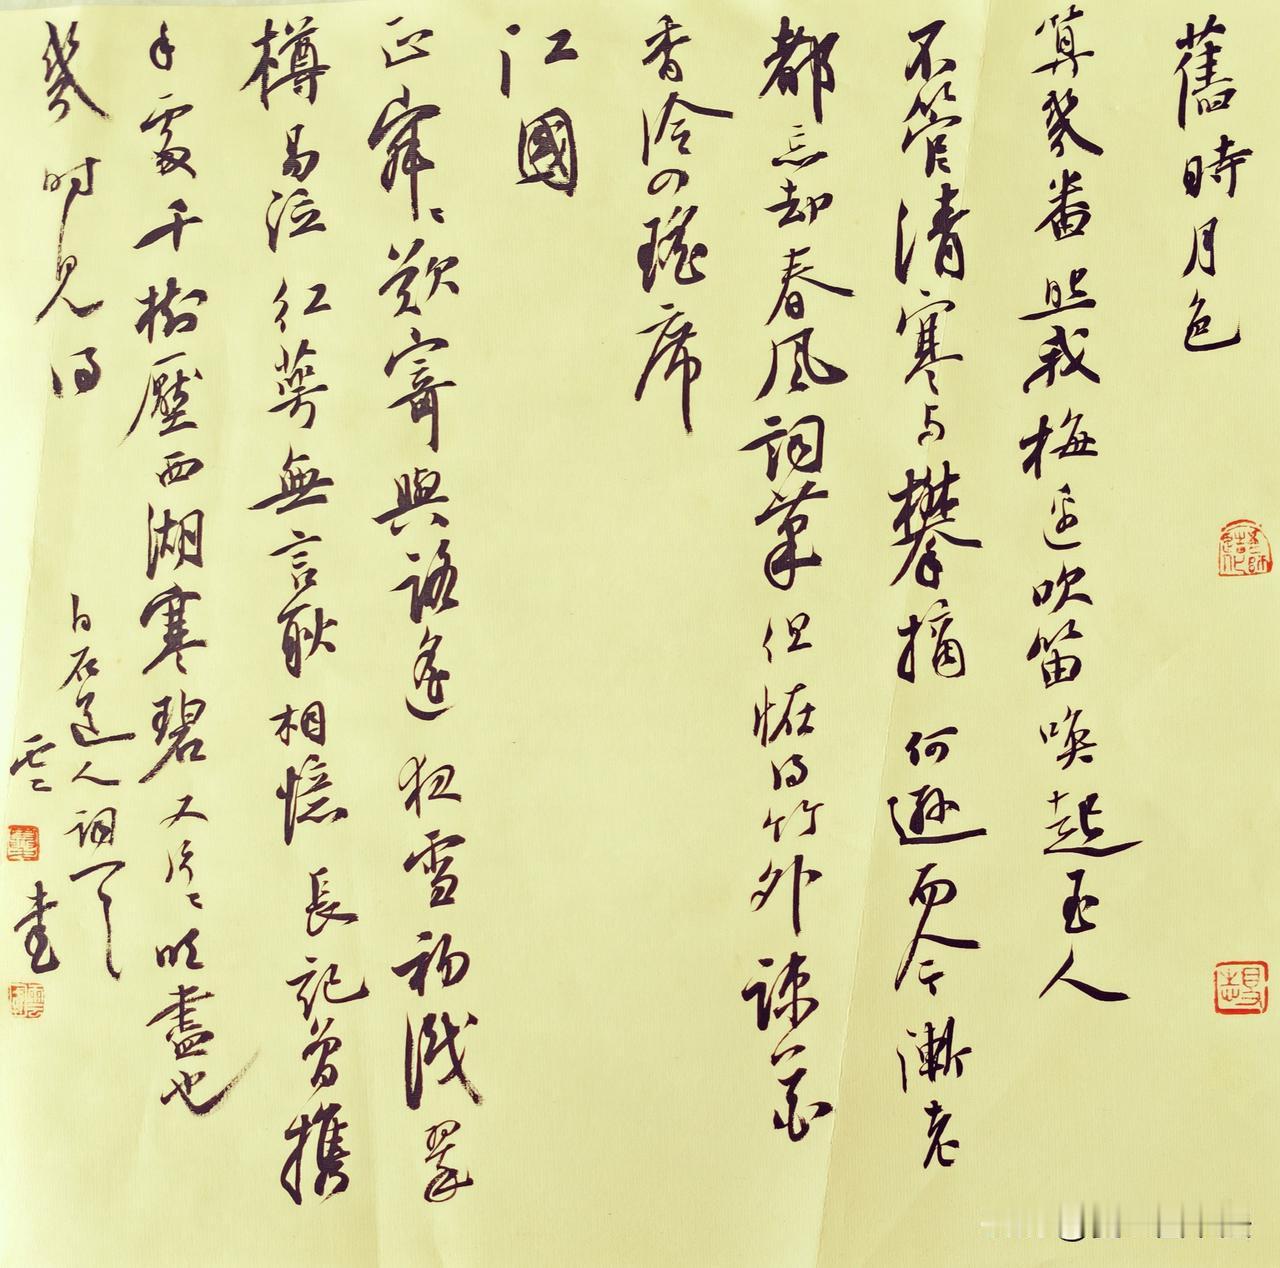 舊時月色
算幾番照我梅邊吹笛喚起玉人
不管清寒與攀摘何遜而今漸老
都忘却春風詞筆但怪得竹外疎花
香冷入瑤席
江國
正寂寂歎寄與路遙夜雪初積翠
樽易泣紅萼無言耿相憶長記曾攜
手處千樹壓西湖寒碧又片片吹盡也
幾時見得
白石道人詞
雲
書